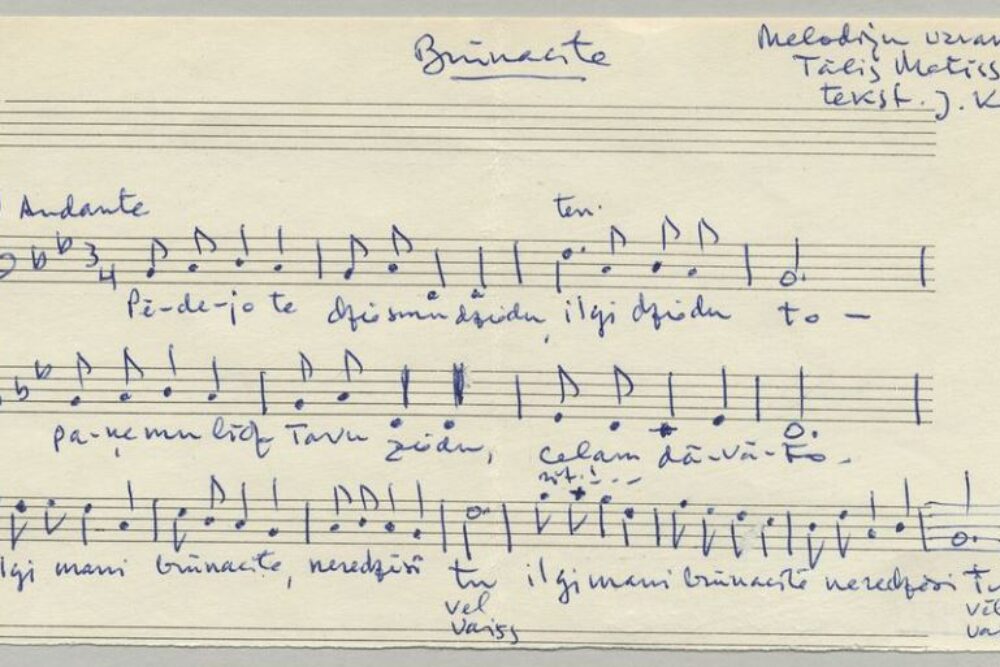 Brūnacīte
Melodiju
Tālis Matīss
tekst. J. K
Andante
ten.
3
4
Pē-de-jo te dziesmu dziedu, ilgi dziedu to -
pa-ņemu līdz Tavu ziedu, ceļam dā-vā-to.
rit.
ilgi mani brūnacīte, neredzēsi tu ilgi mani brūnacītē neredzēsi Tu
vēl
vairs